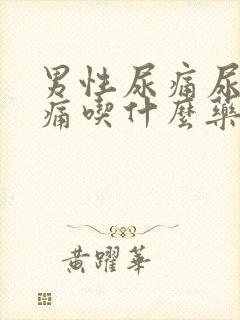 男性尿痛尿
痛喫什麼藥
黃躍華